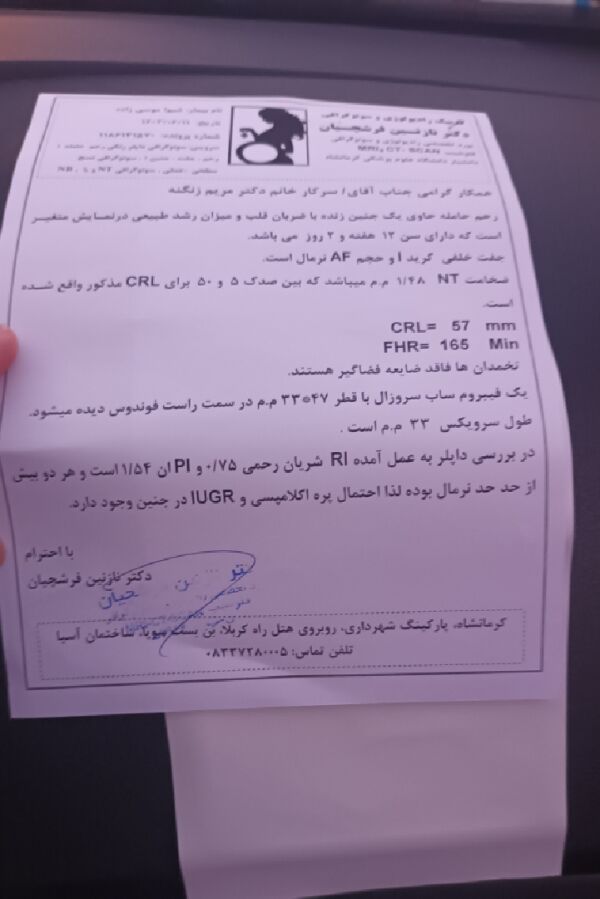 کلینیک رادیولوژی و سونوگرافی
دکتر نازنین فرشچیان
بورد تخصصی رادیولوژی و سونوگرافی
MRI, CT. SCAN
دانشیار دانشگاه علوم پزشکی کرمانشاه
نام بیمار: شیوا موسی زاده
تاریخ:
شماره پرونده:
سرویس: سونوگرافی داپلر رنگی رحم حامله
NT و NB
همکار گرامی جناب آقای/ سرکار خانم دکتر مریم زنگنه
رحم حامله حاوی یک جنین زنده با ضربان قلب و میزان رشد طبیعی درنمایش متغیر
است که دارای سن ۱۲ هفته و ۲ روز می باشد.
جفت خلفی گرید I و حجم AF نرمال است.
ضخامت NT ۱/۴۸ م.م میباشد که بین صدک ۵ و ۵۰ برای CRL مذکور واقع شده
است.
CRL= 57 mm
FHR= 165 Min
تخمدان ها فاقد ضایعه فضاگیر هستند.
یک فیبروم ساب سروزال با قطر ۴۷*۳۳ م.م در سمت راست فوندوس دیده میشود.
طول سرویکس ۳۳ م.م است .
در بررسی داپلر به عمل آمده RI شریان رحمی ۰/۷۵ و PI ان ۱/۵۴ است و هر دو بیش
از حد حد نرمال بوده لذا احتمال پره اکلامپسی و IUGR در جنین وجود دارد.
با احترام
دکتر نازنین فرشچیان
کرمانشاه، پارکینگ شهرداری، روبروی هتل راه کربلا، بن بست ساختمان آسیا
تلفن تماس: ۰۸۳۳۷۲۸۰۰۰۵